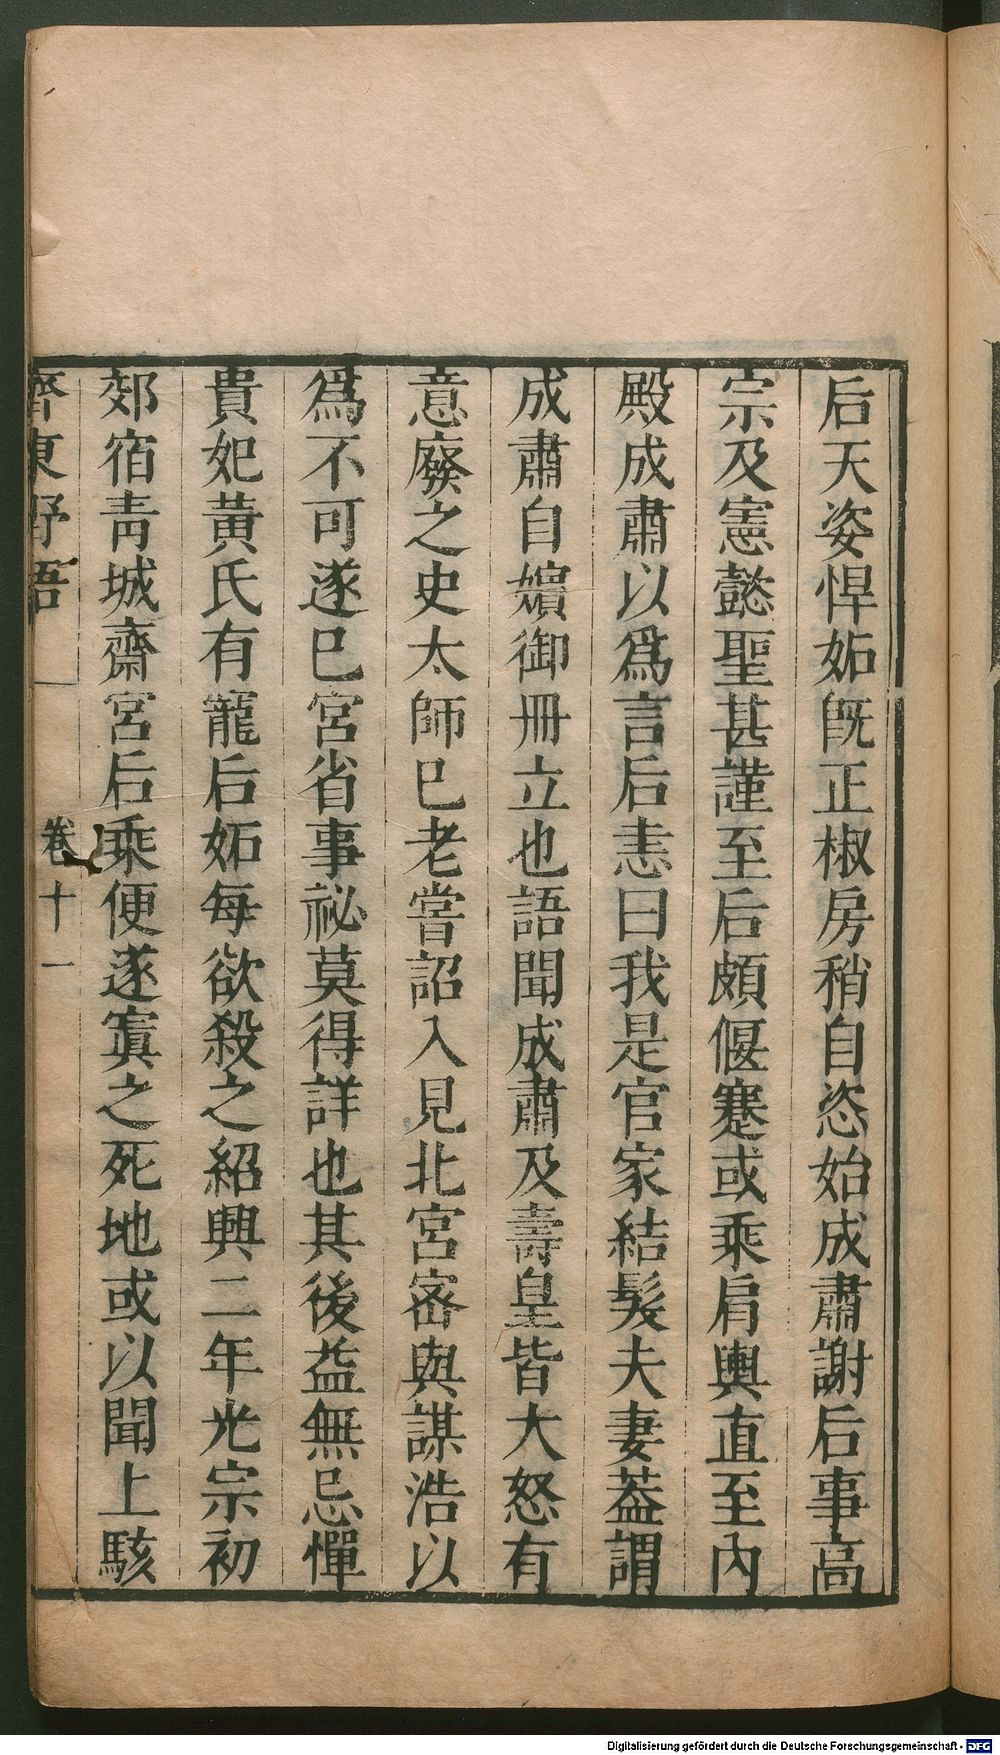 后天姿悍妬旣正椒房稍自恣始成肅謝后事高
宗及憲懿聖甚謹至后頗偃蹇或乘肩輿直至內
殿成肅以爲言后恚曰我是官家結髮夫妻葢謂
成肅自嬪御冊立也語聞成肅及壽皇皆大怒有
意廢之史太師巳老嘗詔入見北宮密與謀浩以
爲不可遂巳宮省事祕莫得詳也其後益無忌憚
貴妃黃氏有寵后妬每欲殺之紹興二年光宗初
郊宿靑城齋宮后乘便遂寘之死地或以聞上駭
齊東野語 卷十一
Digitalisierung gefördert durch die Deutsche Forschungsgemeinschaft - DFG